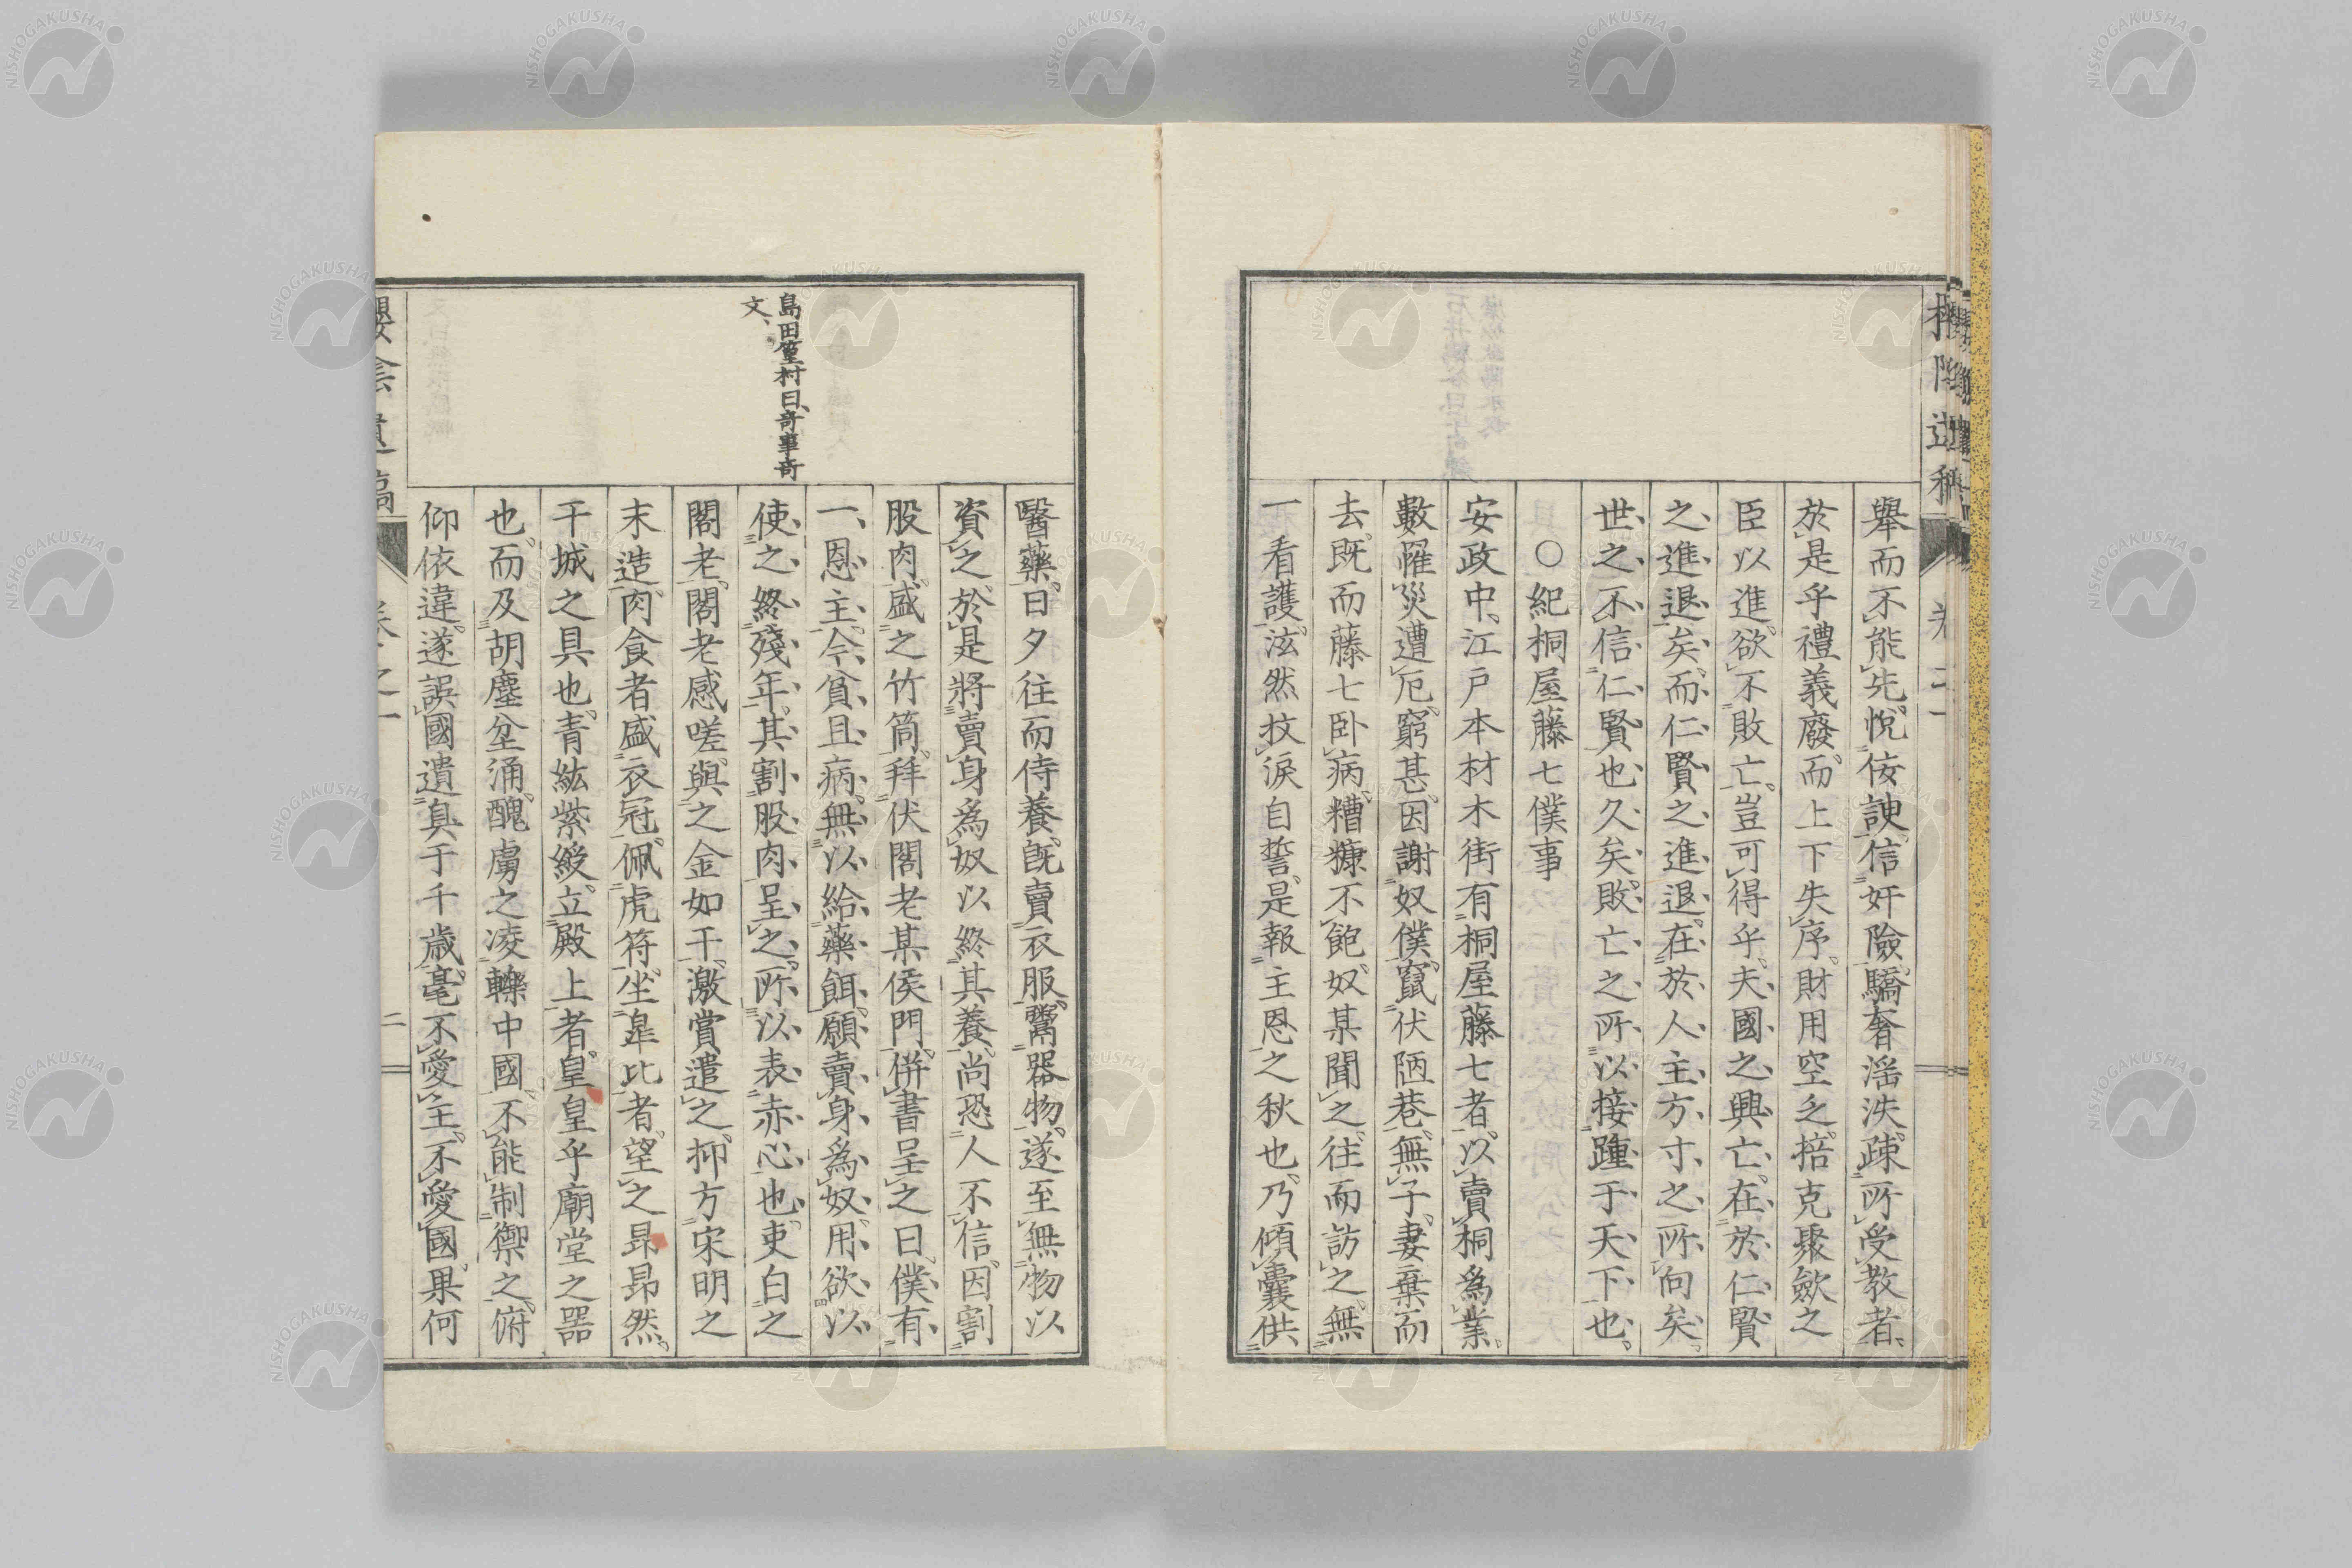 舉而不能先。悅佞諛。信奸險。驕奢淫泆。疎所受教者、
於是乎禮義廢。而上下失序。財用空乏。掊克聚斂之
臣以進。欲不敗亡。豈可得乎。夫國之興亡。在於仁賢
之進退矣。而仁賢之進退。在於人主方寸之所向矣。
世之不信仁賢也久矣。敗亡之所以接踵于天下也。
○紀桐屋藤七僕事
安政中、江戶本材木街有桐屋藤七者。以賣桐爲業。
數罹災遭厄。窮甚。因謝奴僕。竄伏陋巷。無子。妻棄而
去。既而藤七臥病。糟糠不飽。奴某聞之。往而訪之。無
一看護。泫然抆淚自誓。是報主恩之秋也。乃傾囊供
醫藥。日夕往而侍養。既賣衣服。鬻器物。遂至無物以
資之。於是將賣身爲奴以終其養。尚恐人不信。因割
股肉。盛之竹筒。拜伏閣老某侯門。併書呈之曰。僕有
一恩主。今貧且病。無以給藥餌。願賣身爲奴。用欲以
使之終殘年。其割股肉呈之。所以表赤心也。吏白之
閣老。閣老感嗟。與之金如干。激賞遣之。抑方宋明之
末造。肉食者盛衣冠。佩虎符。坐皐比者。望之昻昻然。
干城之具也。青紘紫綬。立殿上者。皇皇乎廟堂之器
也。而及胡塵坌涌。醜虜之凌轢中國。不能制禦之。俯
仰依違。遂誤國遺臭于千歲。毫不愛主。不愛國。果何
島田篁村曰、奇事奇
文、